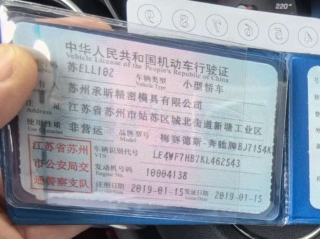 220°
中华人民共和国机动车行驶证
Vehicle License of the People's Republic of China
苏ELL102 车辆类型 小型轿车
Vehicle Type
苏州承昕精密模具有限公司
江苏省苏州市姑苏区城北街道新塘工业区
使用性质 非营运 品牌型号 梅赛德斯-奔驰牌
Use Character Model
江苏省苏州 车辆识别代号
市公安局交 VIN
通警察支队 发动机号码 10004138
Engine No.
注册日期 2019-01-15 发证日期 2019-01-15